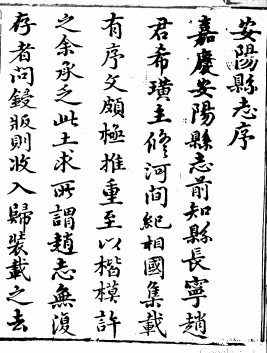 安陽縣志序
嘉慶安陽縣志前知縣長寧趙
君希璜主修河間紀相國集載
有序文頗極推重至以楷模許
之余承乏此土求所謂趙志無復
存者問鋟版則收入歸裝載之去